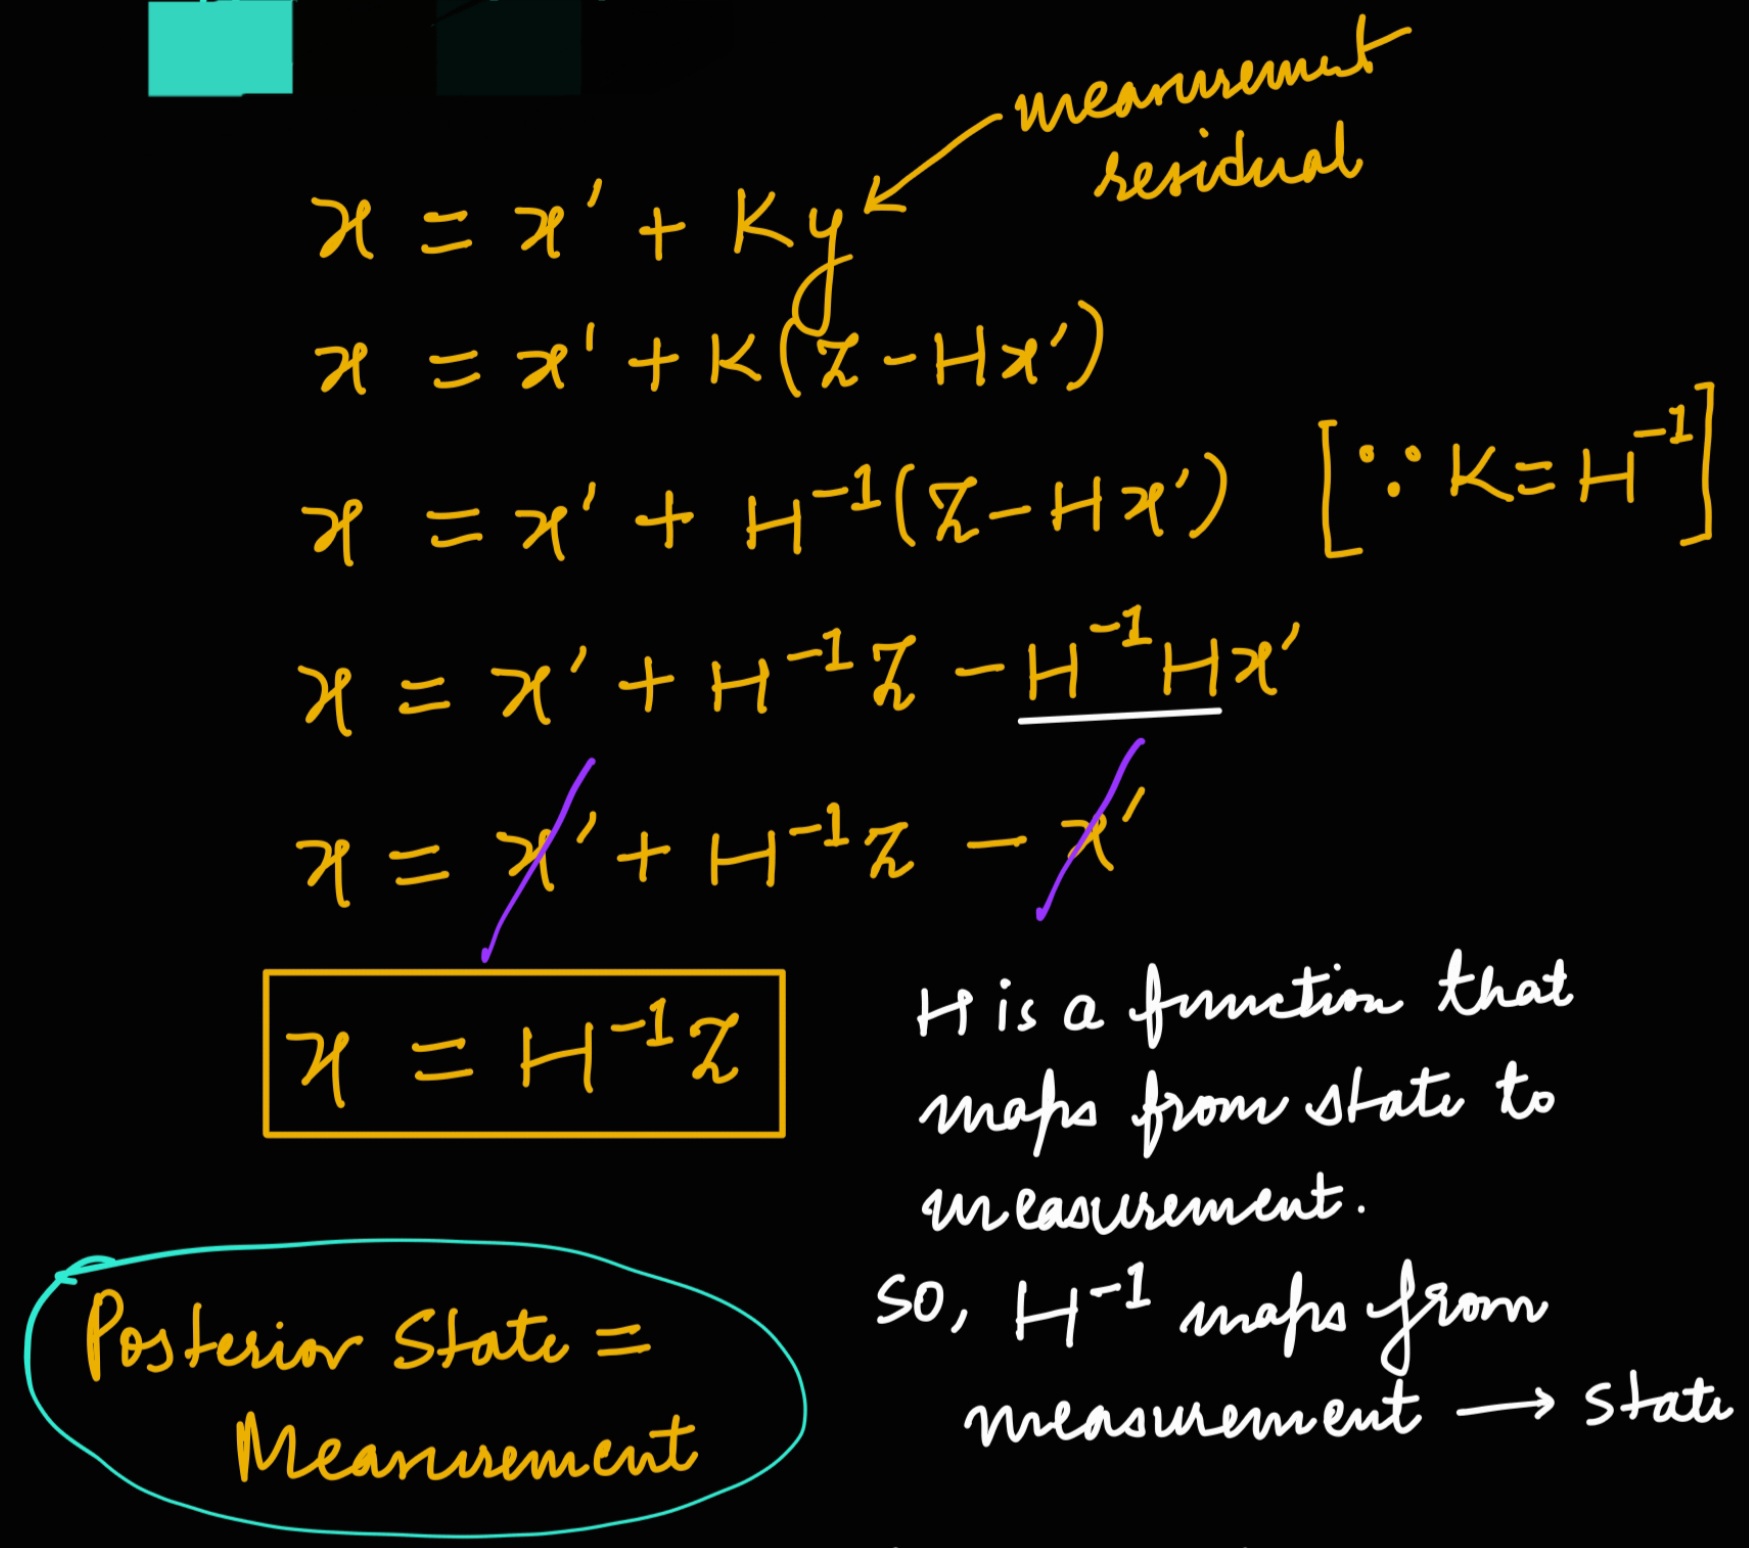 measurement
residual
x = x' + Ky
x = x' + K(z - Hx')
x = x' + H⁻¹(z - Hx') [∵ K = H⁻¹]
x = x' + H⁻¹z - H⁻¹Hx'
x = x' + H⁻¹z - x'
x = H⁻¹z
H is a function that
maps from state to
measurement.
SO, H⁻¹ maps from
measurement → state
Posterior State =
Measurement